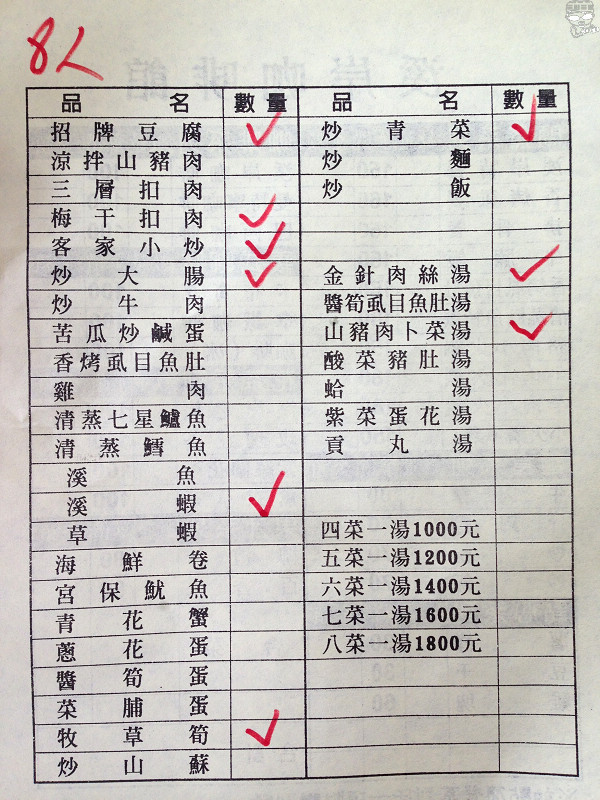 8人
品名 數量 品名 數量
招牌豆腐 ✓ 炒青菜 ✓
涼拌山豬肉 炒麵
三層扣肉 炒飯
梅干扣肉 ✓
客家小炒 ✓
炒大腸 ✓ 金針肉絲湯 ✓
炒牛肉 醬筍虱目魚肚湯
苦瓜炒鹹蛋 山豬肉卜菜湯 ✓
香烤虱目魚肚 酸菜豬肚湯
雞肉 蛤湯
清蒸七星鱸魚 紫菜蛋花湯
清蒸鱈魚 貢丸湯
溪魚
溪蝦 ✓
草蝦 四菜一湯1000元
海鮮卷 五菜一湯1200元
宮保魷魚 六菜一湯1400元
青花蟹 七菜一湯1600元
蔥花蛋 八菜一湯1800元
醬筍蛋
菜脯蛋
牧草筍 ✓
炒山蘇